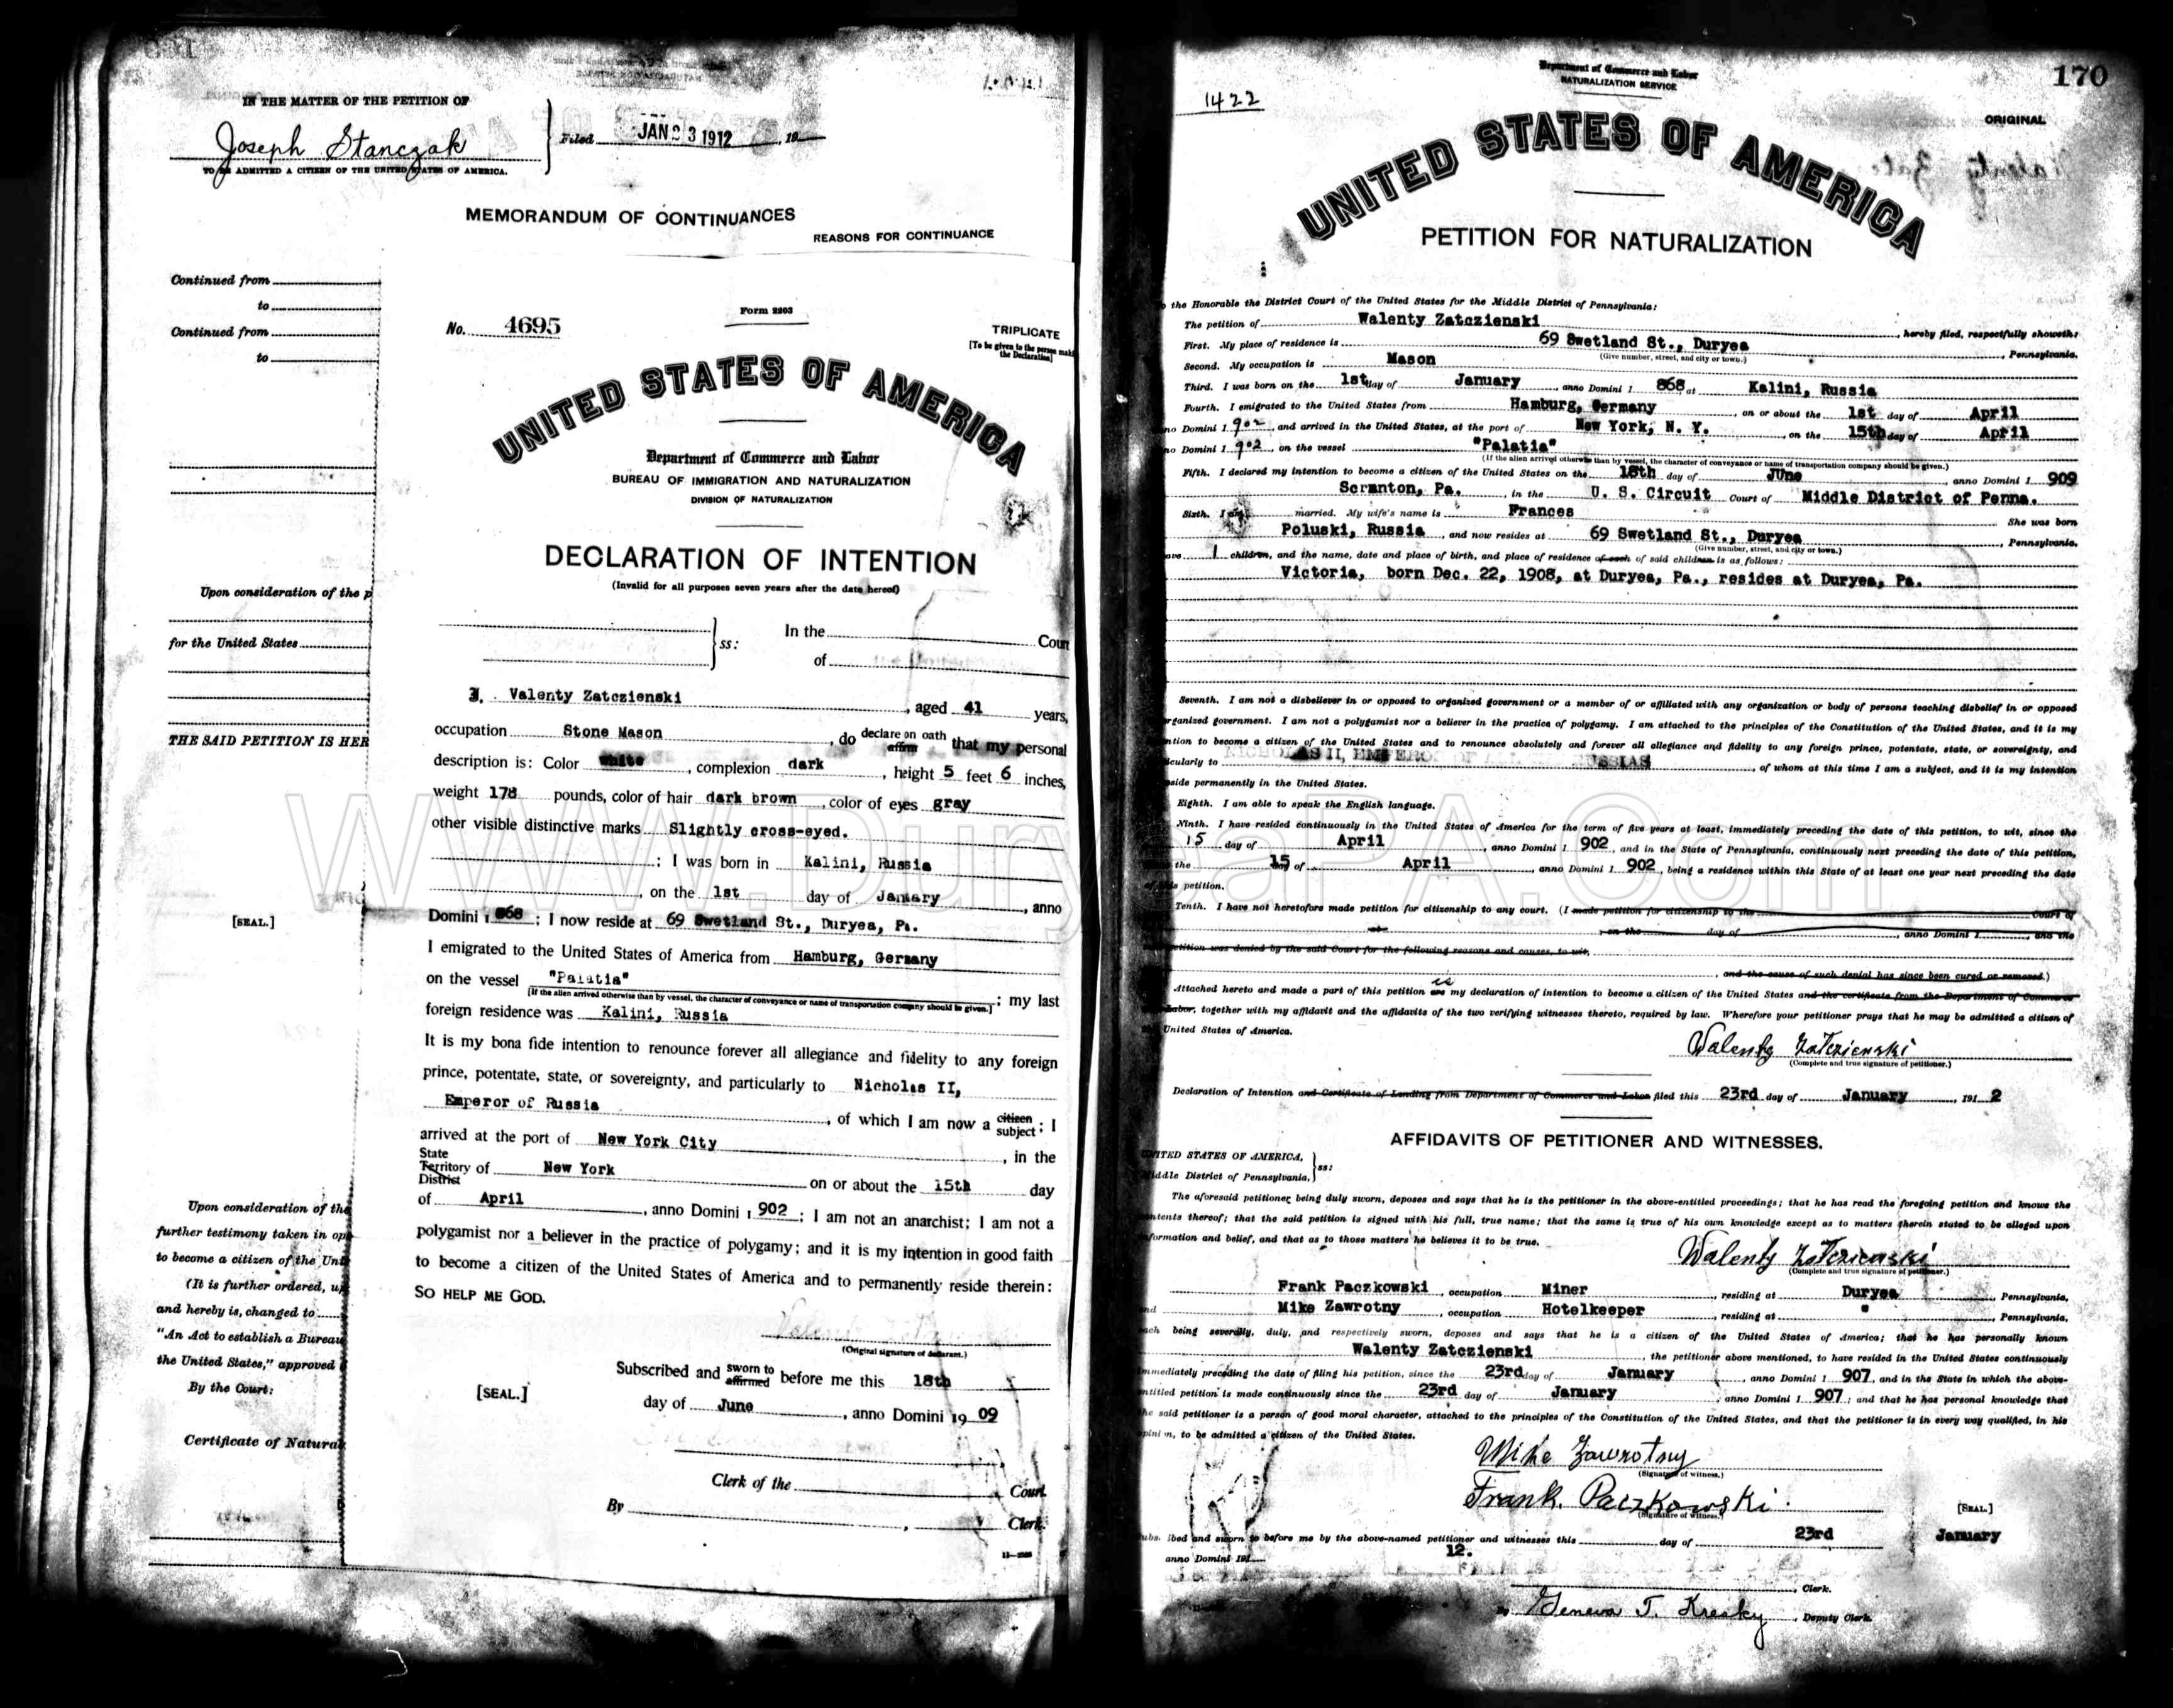 IN THE MATTER OF THE PETITION OF
Joseph Stanczak
Filed JAN 23 1912, 19
TO BE ADMITTED A CITIZEN OF THE UNITED STATES OF AMERICA.
MEMORANDUM OF CONTINUANCES
REASONS FOR CONTINUANCE
Continued from
to
Continued from
to
Upon consideration of the p
for the United States
THE SAID PETITION IS HER
[SEAL.]
Upon consideration of the
further testimony taken in op
to become a citizen of the Uni
(It is further ordered, u
and hereby is, changed to
"An Act to establish a Bureau
the United States," approved
By the Court:
Certificate of Natura
Form 2203
No. 4695
TRIPLICATE
[To be given to the person mak
the Declaration]
UNITED STATES OF AMERICA
Department of Commerce and Labor
BUREAU OF IMMIGRATION AND NATURALIZATION
DIVISION OF NATURALIZATION
DECLARATION OF INTENTION
(Invalid for all purposes seven years after the date hereof)
ss: In the Cour
of
I, Valenty Zatczienski, aged 41 years,
occupation Stone Mason, do declare on oath affirm that my personal
description is: Color white, complexion dark, height 5 feet 6 inches,
weight 178 pounds, color of hair dark brown, color of eyes gray
other visible distinctive marks Slightly cross-eyed.
; I was born in Kalini, Russia
, on the 1st day of January, anno
Domini 1 868; I now reside at 69 Swetland St., Duryea, Pa.
I emigrated to the United States of America from Hamburg, Germany
on the vessel "Palatia"; my last
[If the alien arrived otherwise than by vessel, the character of conveyance or name of transportation company should be given.]
foreign residence was Kalini, Russia
It is my bona fide intention to renounce forever all allegiance and fidelity to any foreign
prince, potentate, state, or sovereignty, and particularly to Nicholas II,
Emperor of Russia, of which I am now a citizen subject; I
arrived at the port of New York City, in the
State Territory District of New York on or about the 15th day
of April, anno Domini 1 902; I am not an anarchist; I am not a
polygamist nor a believer in the practice of polygamy; and it is my intention in good faith
to become a citizen of the United States of America and to permanently reside therein:
SO HELP ME GOD.
(Original signature of declarant.)
Subscribed and sworn to affirmed before me this 18th
[SEAL.]
day of June, anno Domini 19 09
Clerk of the Court.
By , Clerk.
170
Department of Commerce and Labor
NATURALIZATION SERVICE
1422
ORIGINAL
UNITED STATES OF AMERICA
PETITION FOR NATURALIZATION
the Honorable the District Court of the United States for the Middle District of Pennsylvania:
The petition of Walenty Zatczienski, hereby filed, respectfully showeth:
First. My place of residence is 69 Swetland St., Duryea, Pennsylvania.
(Give number, street, and city or town.)
Second. My occupation is Mason
Third. I was born on the 1st day of January, anno Domini 1 868, at Kalini, Russia
Fourth. I emigrated to the United States from Hamburg, Germany, on or about the 1st day of April
no Domini 1 902, and arrived in the United States, at the port of New York, N. Y., on the 15th day of April
no Domini 1 902, on the vessel "Palatia"
(If the alien arrived otherwise than by vessel, the character of conveyance or name of transportation company should be given.)
Fifth. I declared my intention to become a citizen of the United States on the 18th day of June, anno Domini 1 909
Scranton, Pa., in the U. S. Circuit Court of Middle District of Penna.
Sixth. I am married. My wife's name is Frances She was born
Poluski, Russia, and now resides at 69 Swetland St., Duryea, Pennsylvania.
(Give number, street, and city or town.)
ave 1 children, and the name, date and place of birth, and place of residence of each of said children is as follows:
Victoria, born Dec. 22, 1908, at Duryea, Pa., resides at Duryea, Pa.
Seventh. I am not a disbeliever in or opposed to organized government or a member of or affiliated with any organization or body of persons teaching disbelief in or opposed
rganized government. I am not a polygamist nor a believer in the practice of polygamy. I am attached to the principles of the Constitution of the United States, and it is my
ntion to become a citizen of the United States and to renounce absolutely and forever all allegiance and fidelity to any foreign prince, potentate, state, or sovereignty, and
icularly to NICHOLAS II, EMPEROR OF ALL THE RUSSIAS, of whom at this time I am a subject, and it is my intention
side permanently in the United States.
Eighth. I am able to speak the English language.
Ninth. I have resided continuously in the United States of America for the term of five years at least, immediately preceding the date of this petition, to wit, since the
15 day of April, anno Domini 1 902, and in the State of Pennsylvania, continuously next preceding the date of this petition,
the 15 day of April, anno Domini 1 902, being a residence within this State of at least one year next preceding the date
of this petition.
Tenth. I have not heretofore made petition for citizenship to any court. (I made petition for citizenship to the Court of
at on the day of , anno Domini 1 , and the
petition was denied by the said Court for the following reasons and causes, to wit,
, and the cause of such denial has since been cured or removed.)
Attached hereto and made a part of this petition are is my declaration of intention to become a citizen of the United States and the certificate from the Department of Commerce
Labor, together with my affidavit and the affidavits of the two verifying witnesses thereto, required by law. Wherefore your petitioner prays that he may be admitted a citizen of
United States of America.
Walenty Zatczienski
(Complete and true signature of petitioner.)
Declaration of Intention and Certificate of Landing from Department of Commerce and Labor filed this 23rd day of January, 191 2
AFFIDAVITS OF PETITIONER AND WITNESSES.
UNITED STATES OF AMERICA,
Middle District of Pennsylvania, ss:
The aforesaid petitioner being duly sworn, deposes and says that he is the petitioner in the above-entitled proceedings; that he has read the foregoing petition and knows the
contents thereof; that the said petition is signed with his full, true name; that the same is true of his own knowledge except as to matters therein stated to be alleged upon
formation and belief, and that as to those matters he believes it to be true.
Walenty Zatczienski
(Complete and true signature of petitioner.)
Frank Paczkowski, occupation Miner, residing at Duryea, Pennsylvania,
and Mike Zawrotny, occupation Hotelkeeper, residing at ", Pennsylvania,
each being severally, duly, and respectively sworn, deposes and says that he is a citizen of the United States of America; that he has personally known
Walenty Zatczienski, the petitioner above mentioned, to have resided in the United States continuously
immediately preceding the date of filing his petition, since the 23rd day of January, anno Domini 1 907, and in the State in which the above-
entitled petition is made continuously since the 23rd day of January, anno Domini 1 907; and that he has personal knowledge that
he said petitioner is a person of good moral character, attached to the principles of the Constitution of the United States, and that the petitioner is in every way qualified, in his
opinion, to be admitted a citizen of the United States.
Mike Zawrotny
(Signature of witness.)
Frank Paczkowski.
(Signature of witness.)
[SEAL.]
Subscribed and sworn to before me by the above-named petitioner and witnesses this 23rd day of January
anno Domini 191 12.
, Clerk.
By Geneva T. Kresky, Deputy Clerk.
www.DuryeaPA.Com